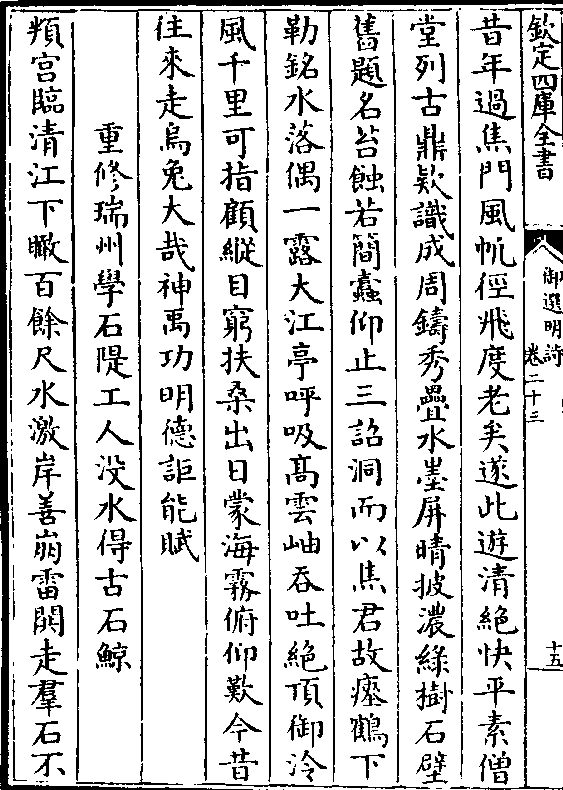 欽定四庫全書
御選明詩
卷二十三
十五
昔年過焦門風帆徑飛度老矣遂此遊清絶快平素僧
堂列古鼎欵識成周鑄秀疊水墨屏晴披濃綠樹石壁
舊題名苔蝕若簡蠧仰止三詔洞而以焦君故瘞鶴下
勒銘水落偶一露大江亭呼吸髙雲岫吞吐絶頂御泠
風千里可指顧縱目窮扶桑出日蒙海霧俯仰歎今昔
往來走烏兔大哉神禹功明德詎能賦
重修瑞州學石隄工人没水得古石鯨
頖宫臨清江下瞰百餘尺水激岸善崩雷鬬走羣石不